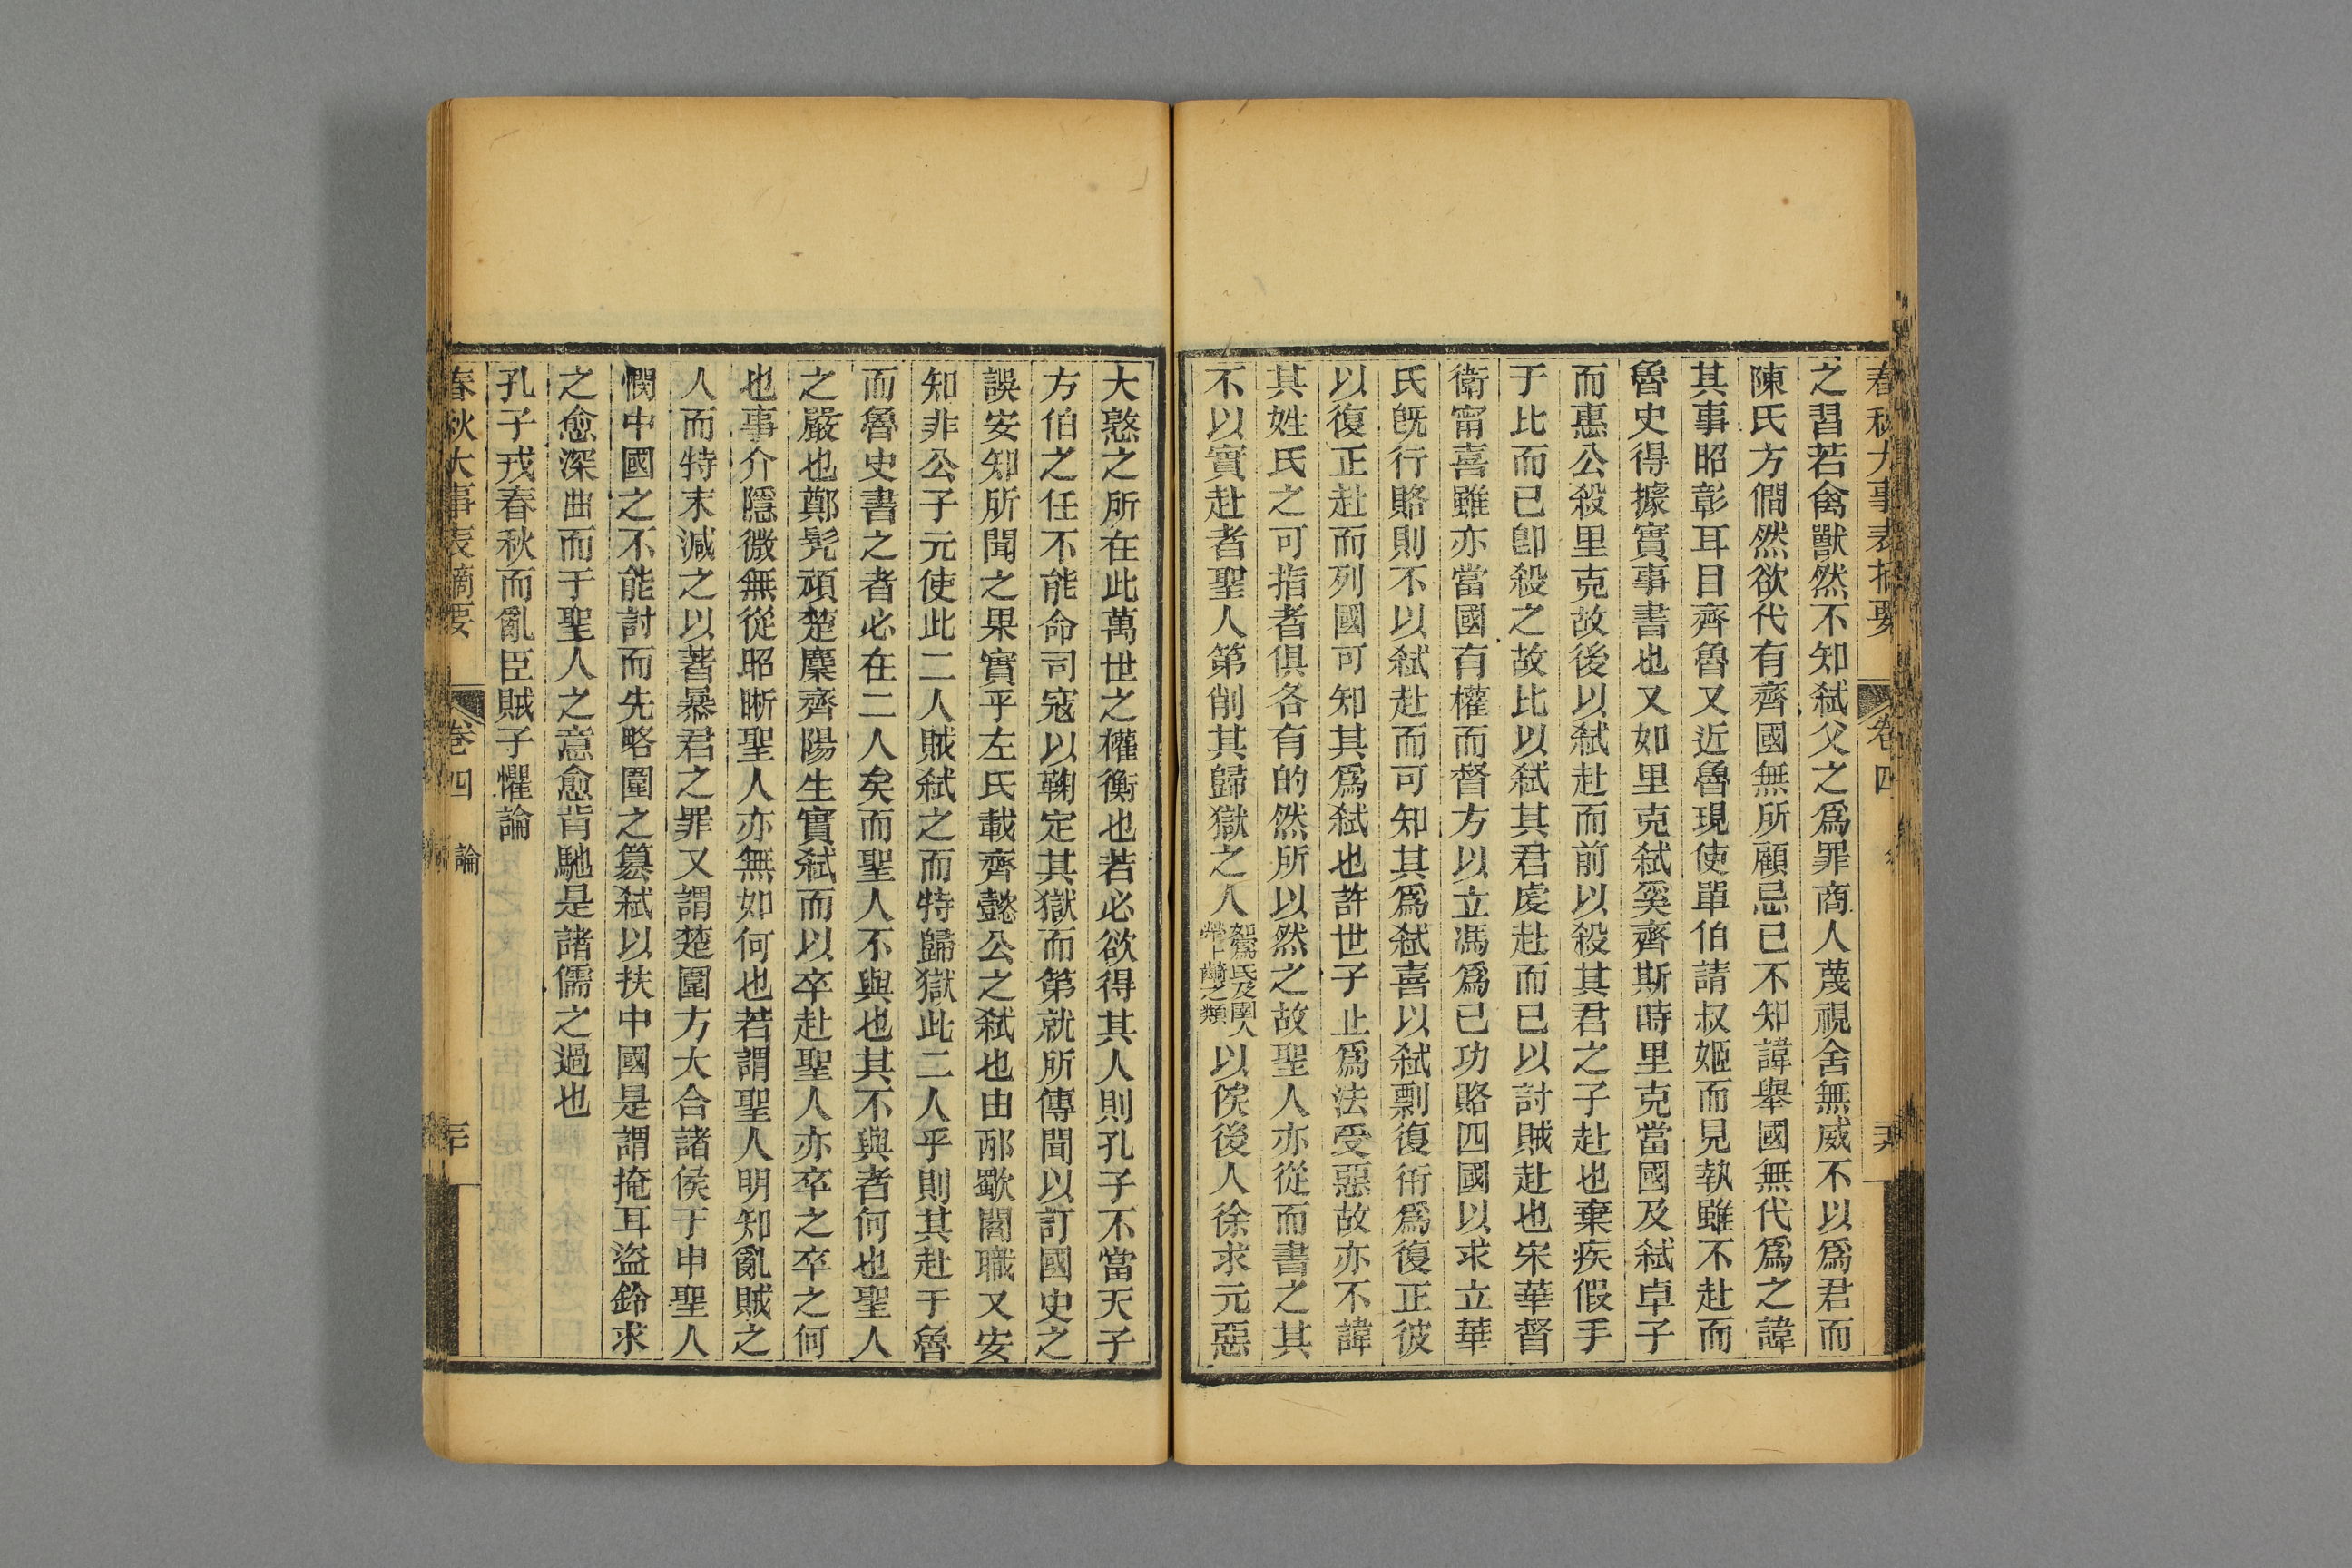 春秋大事表摘要 卷四
之習若禽獸然不知弑父之爲罪商人蔑視舍無威不以爲君而
陳氏方僩然欲代有齊國無所顧忌已不知諱舉國無代爲之諱
其事昭彰耳目齊魯又近魯現使單伯請叔姬而見執雖不赴而
魯史得據實事書也又如里克弑奚齊斯時里克當國及弑卓子
而惠公殺里克故後以弑赴而前以殺其君之子赴也棄疾假手
于比而已卽殺之故比以弑其君虔赴而已以討賊赴也宋華督
衛甯喜雖亦當國有權而督方以立馮爲已功賂四國以求立華
氏旣行賂則不以弑赴而可知其爲弑喜以弑剽復衎爲復正彼
以復正赴而列國可知其爲弑也許世子止爲法受惡故亦不諱
其姓氏之可指者俱各有的然所以然之故聖人亦從而書之其
不以實赴者聖人第削其歸獄之人如寪氏及圉人犖卜齮之類以俟後人徐求元惡
大憝之所在此萬世之權衡也若必欲得其人則孔子不當天子
方伯之任不能命司寇以鞠定其獄而第就所傳聞以訂國史之
誤安知所聞之果實乎左氏載齊懿公之弑也由邴歜閻職又安
知非公子元使此二人賊弑之而特歸獄此二人乎則其赴于魯
而魯史書之者必在二人矣而聖人不與也其不與者何也聖人
之嚴也鄭髠頑楚麇齊陽生實弑而以卒赴聖人亦卒之卒之何
也事介隱微無從昭晰聖人亦無如何也若謂聖人明知亂賊之
人而特末減之以著暴君之罪又謂楚圍方大合諸侯于申聖人
憫中國之不能討而先略圍之簒弑以扶中國是謂掩耳盜鈴求
之愈深曲而于聖人之意愈背馳是諸儒之過也
孔子成春秋而亂臣賊子懼論
春秋大事表摘要 卷四 論